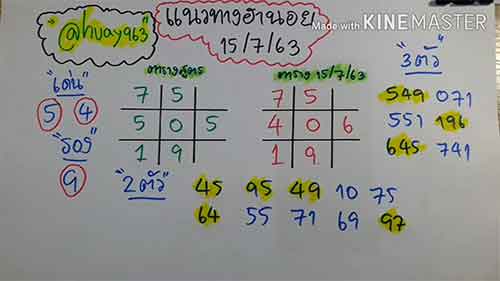 @huay963
แนวทางฮานอย
15/7/63
Made with KINEMASTER
"เด่น"
5 4
"รอง"
9
ตารางสูตร
7 5
5 0 5
1 9
ตาราง 15/7/63
7 5
4 0 6
1 9
"3ตัว"
549 071
551 196
645 741
"2ตัว"
45 95 49 10 75
64 55 71 69 97